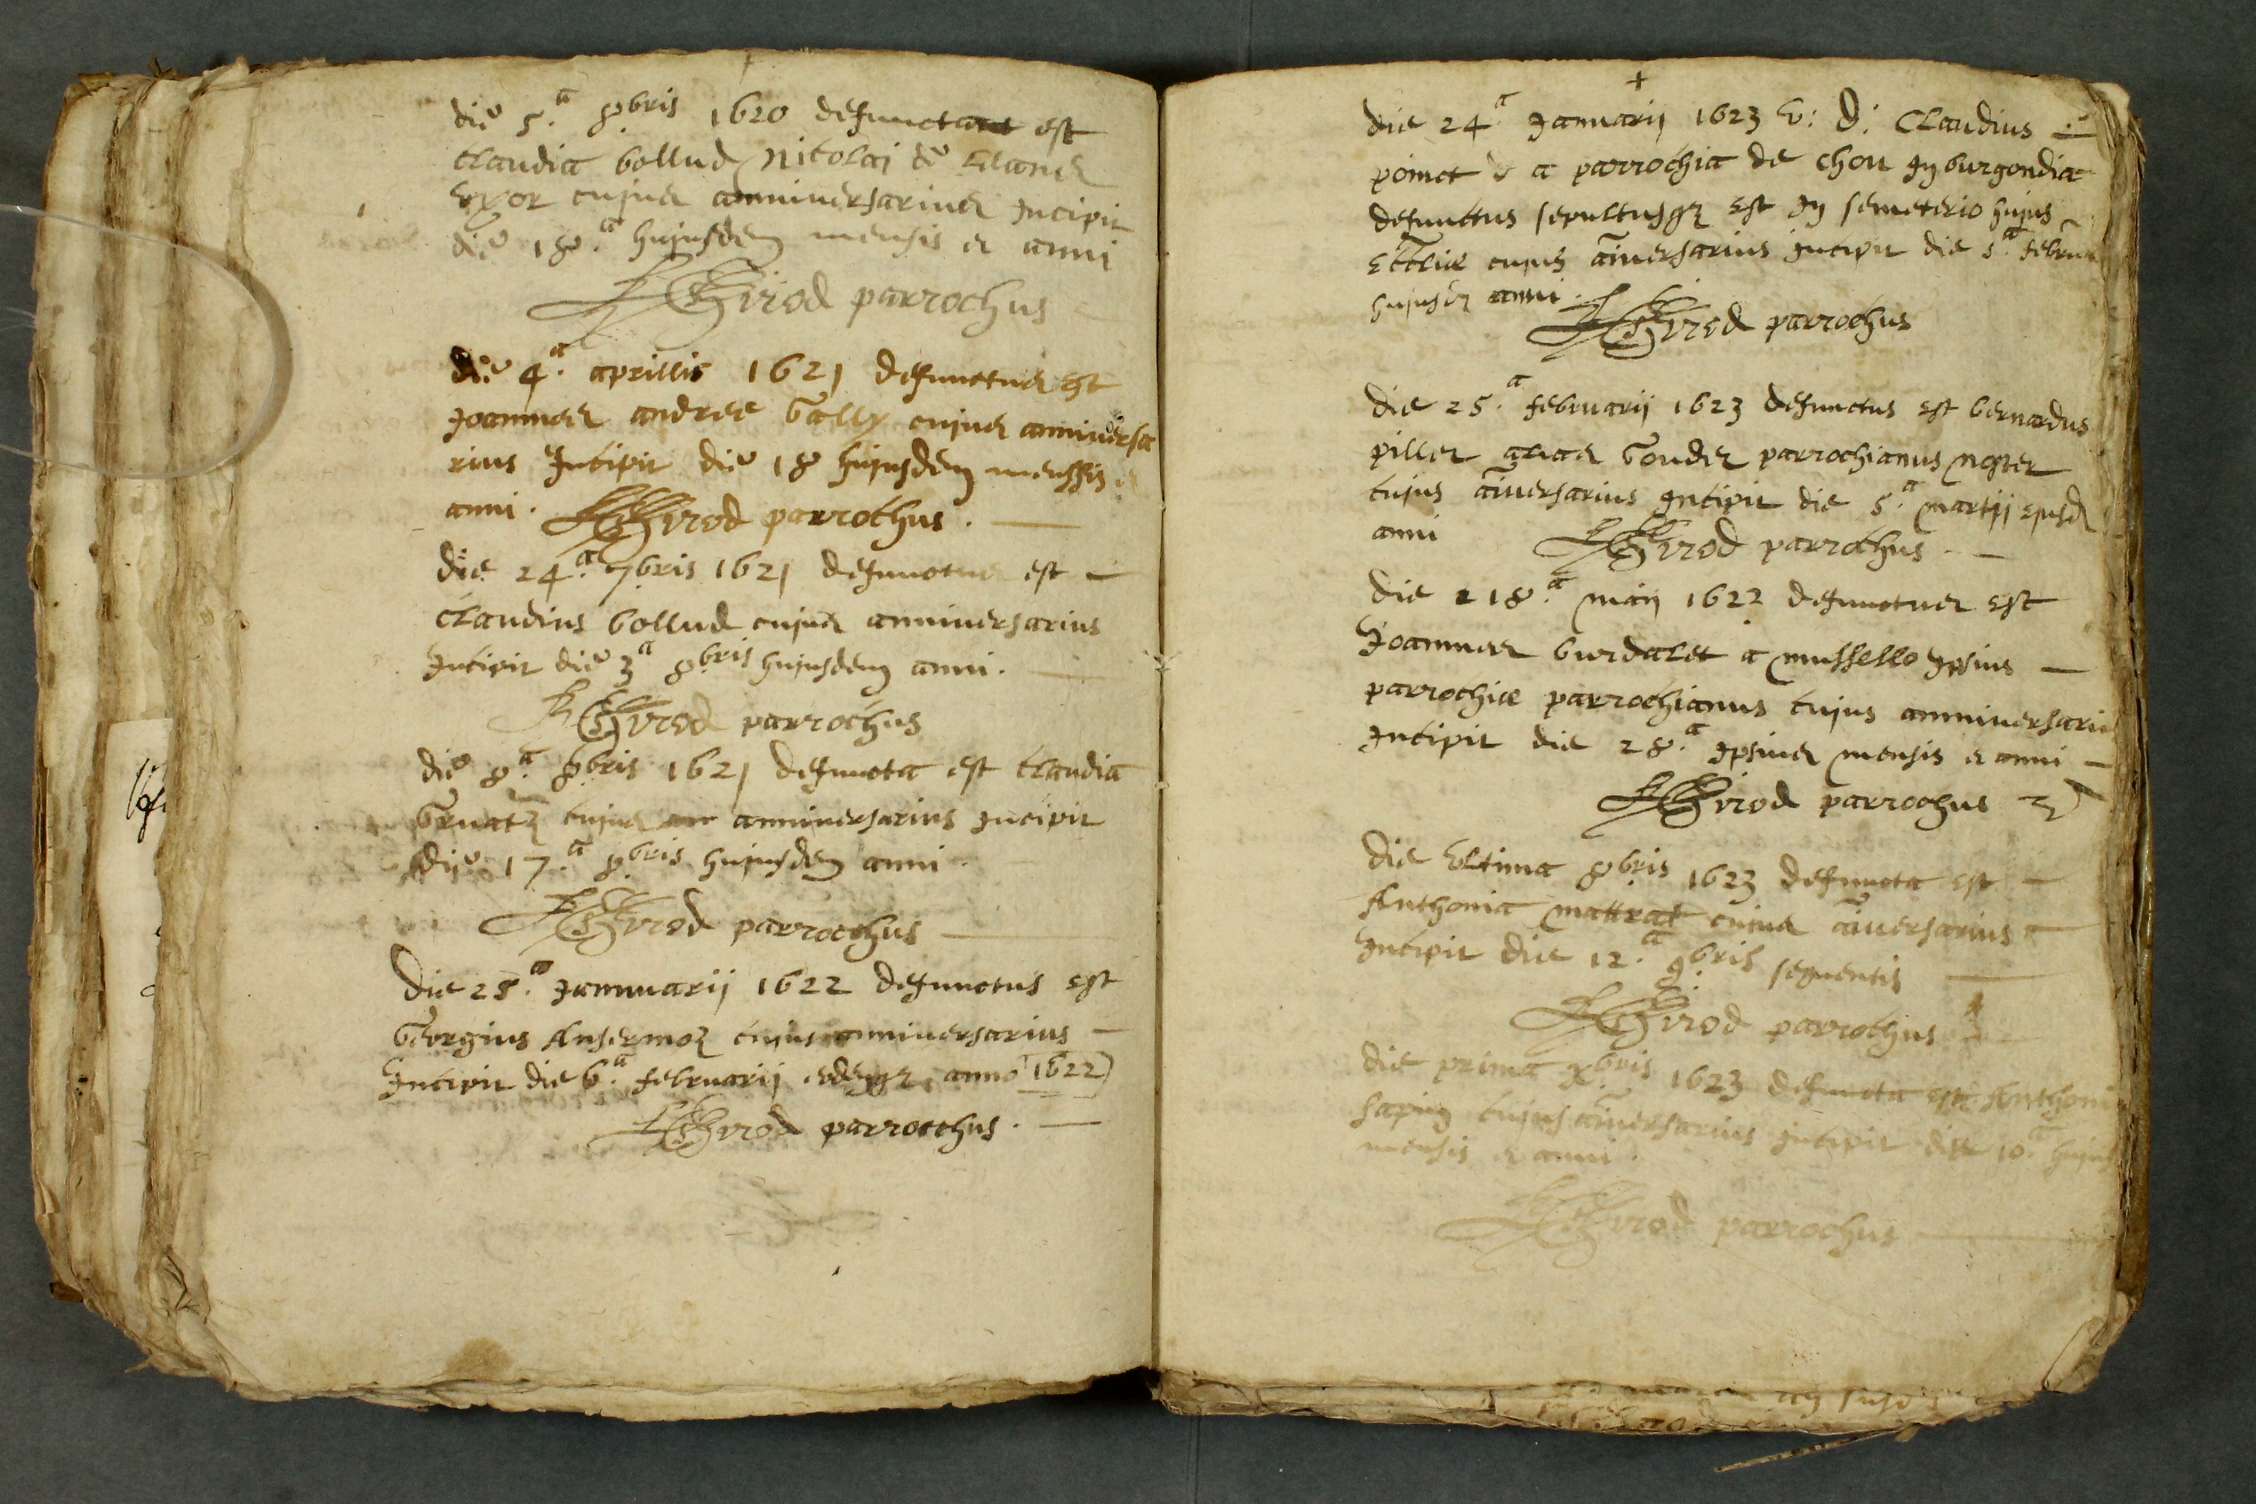 die 5.a 8bris 1620 defuncta est
claudia bollud Nicolai de
uxor cujus anniversarius Incipit
die 18.a hujusdem mensis et anni
Girod parrochus
die 4.a aprillis 1621 defunctus est
Joannes andree Gally cujus anniversa
rius Incipit die 18 hujusdem menssis et
anni. Girod parrochus.
die 24.a 7bris 1621 defunctus est
Claudius bollud cujus anniversarius
Incipit die 3a 8bris hujusdem anni.
Girod parrochus
die 8.a 8bris 1621 defuncta est claudia
cujus anniversarius Incipit
die 17.a 8bris hujusdem anni
Girod parrochus
Die 28.a Januarij 1622 defunctus est
Georgius Ansermoz cujus anniversarius
Incipit die 6.a februarij anno 1622
Girod parrochus.
+
die 24.a Januarij 1623 V: D: Claudius
poimet a parrochia de chon In burgondia
defunctus sepultusque est In semeterio hujus
Eccliæ cujus aiversarius Incipit die 5.a februa
hujusdem anni.
Girod parrochus
die 25.a februarij 1623 defunctus est bernardus
piller alias Gouder parrochianus noster
cujus aiversarius Incipit die 5.a martij ejusd
anni Girod parrochus
die 18.a maij 1622 defunctus est
Joannes burdalet a mussello Ipsius
parrochiæ parrochianus cujus anniversariu
Incipit die 28.a Ipsius mensis et anni
Girod parrochus
die Ultima 8bris 1623 defuncta est
Anthonia mattrat cujus aiversarius
Incipit die 12.a 9bris sequentis
Girod parrochus
die prima Xbris 1623 defuncta est Anthoni
sapin cujus aiversarius Incipit die 10.a hujus
mensis et anni.
Girod parrochus